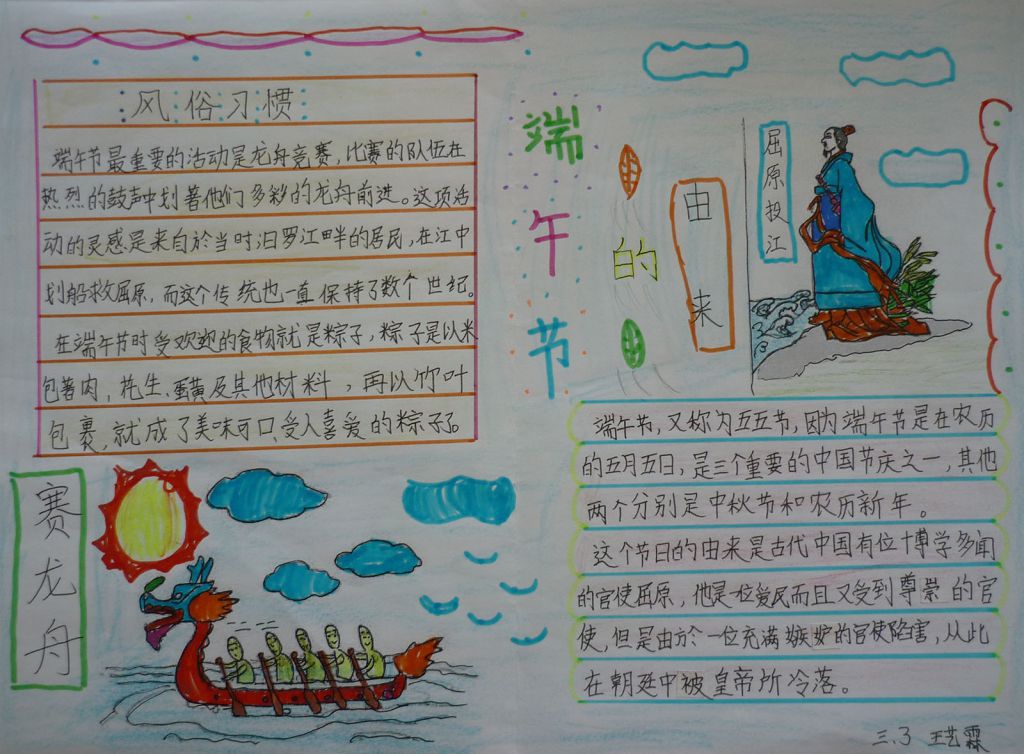 风俗习惯
端午节最重要的活动是龙舟竞赛，比赛的队伍在
热烈的鼓声中划著他们多彩的龙舟前进。这项活
动的灵感是来自於当时汨罗江畔的居民，在江中
划船救屈原，而这个传统也一直保持了数个世纪。
在端午节时受欢迎的食物就是粽子，粽子是以米
包著肉，花生、蛋黄及其他材料，再以竹叶
包裹，就成了美味可口、受人喜爱的粽子了。
赛龙舟
端午节
的
由来
屈原投江
端午节，又称为五五节，因为端午节是在农历
的五月五日，是三个重要的中国节庆之一，其他
两个分别是中秋节和农历新年。
这个节日的由来是古代中国有位博学多闻
的官使屈原，他是一位爱民而且又受到尊崇的官
使，但是由於一位充满嫉妒的官使陷害，从此
在朝廷中被皇帝所冷落。
三.3 王艺霖